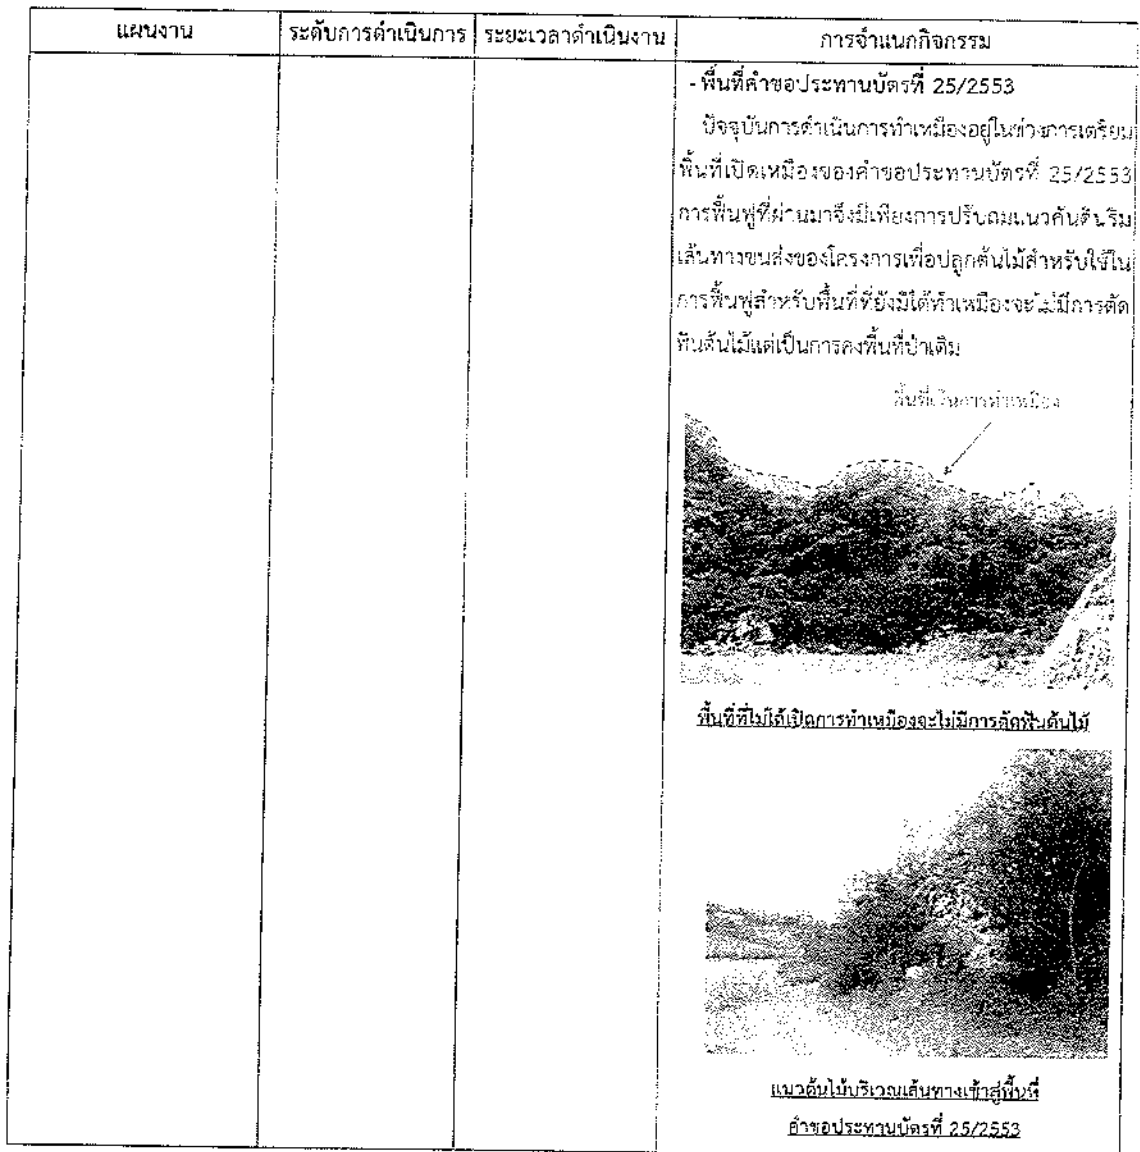 แผนงาน ระดับการดำเนินการ ระยะเวลาดำเนินงาน การจำแนกกิจกรรม
- พื้นที่คำขอประทานบัตรที่ 25/2553
ปัจจุบันการดำเนินการทำเหมืองอยู่ในช่วงการเตรียม
พื้นที่เปิดเหมืองของคำขอประทานบัตรที่ 25/2553
การฟื้นฟูที่ผ่านมาจึงมีเพียงการปรับถมแนวคันดินริม
เส้นทางขนส่งของโครงการเพื่อปลูกต้นไม้สำหรับใช้ใน
การฟื้นฟูสำหรับพื้นที่ที่ยังมิได้ทำเหมืองจะไม่มีการตัด
ฟันต้นไม้แต่เป็นการคงพื้นที่ป่าเดิม
พื้นที่เว้นการทำเหมือง
พื้นที่ที่ไม่ได้เปิดการทำเหมืองจะไม่มีการตัดฟันต้นไม้
แนวต้นไม้บริเวณเส้นทางเข้าสู่พื้นที่
คำขอประทานบัตรที่ 25/2553